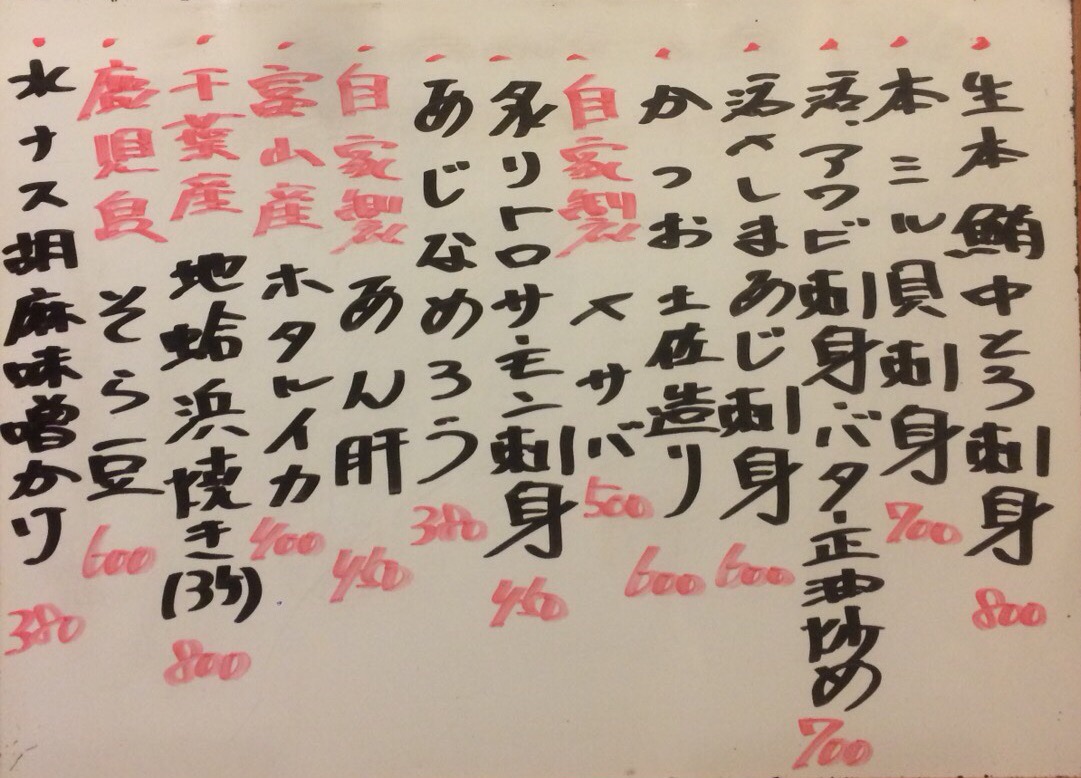 ・生本鮪中とろ刺身 800
・本ミル貝刺身 700
・活、アワビ刺身バター正油炒め 700
・活〆しまあじ刺身 600
・かつお土佐造り 600
・自家製 〆サバ 500
・炙りトロサーモン刺身 450
・あじなめろう 380
・自家製 あん肝 450
・富山産 ホタルイカ 400
・千葉産 地蛤浜焼き(3ケ) 800
・鹿児島 そら豆 600
・水ナス胡麻味噌かけ 380